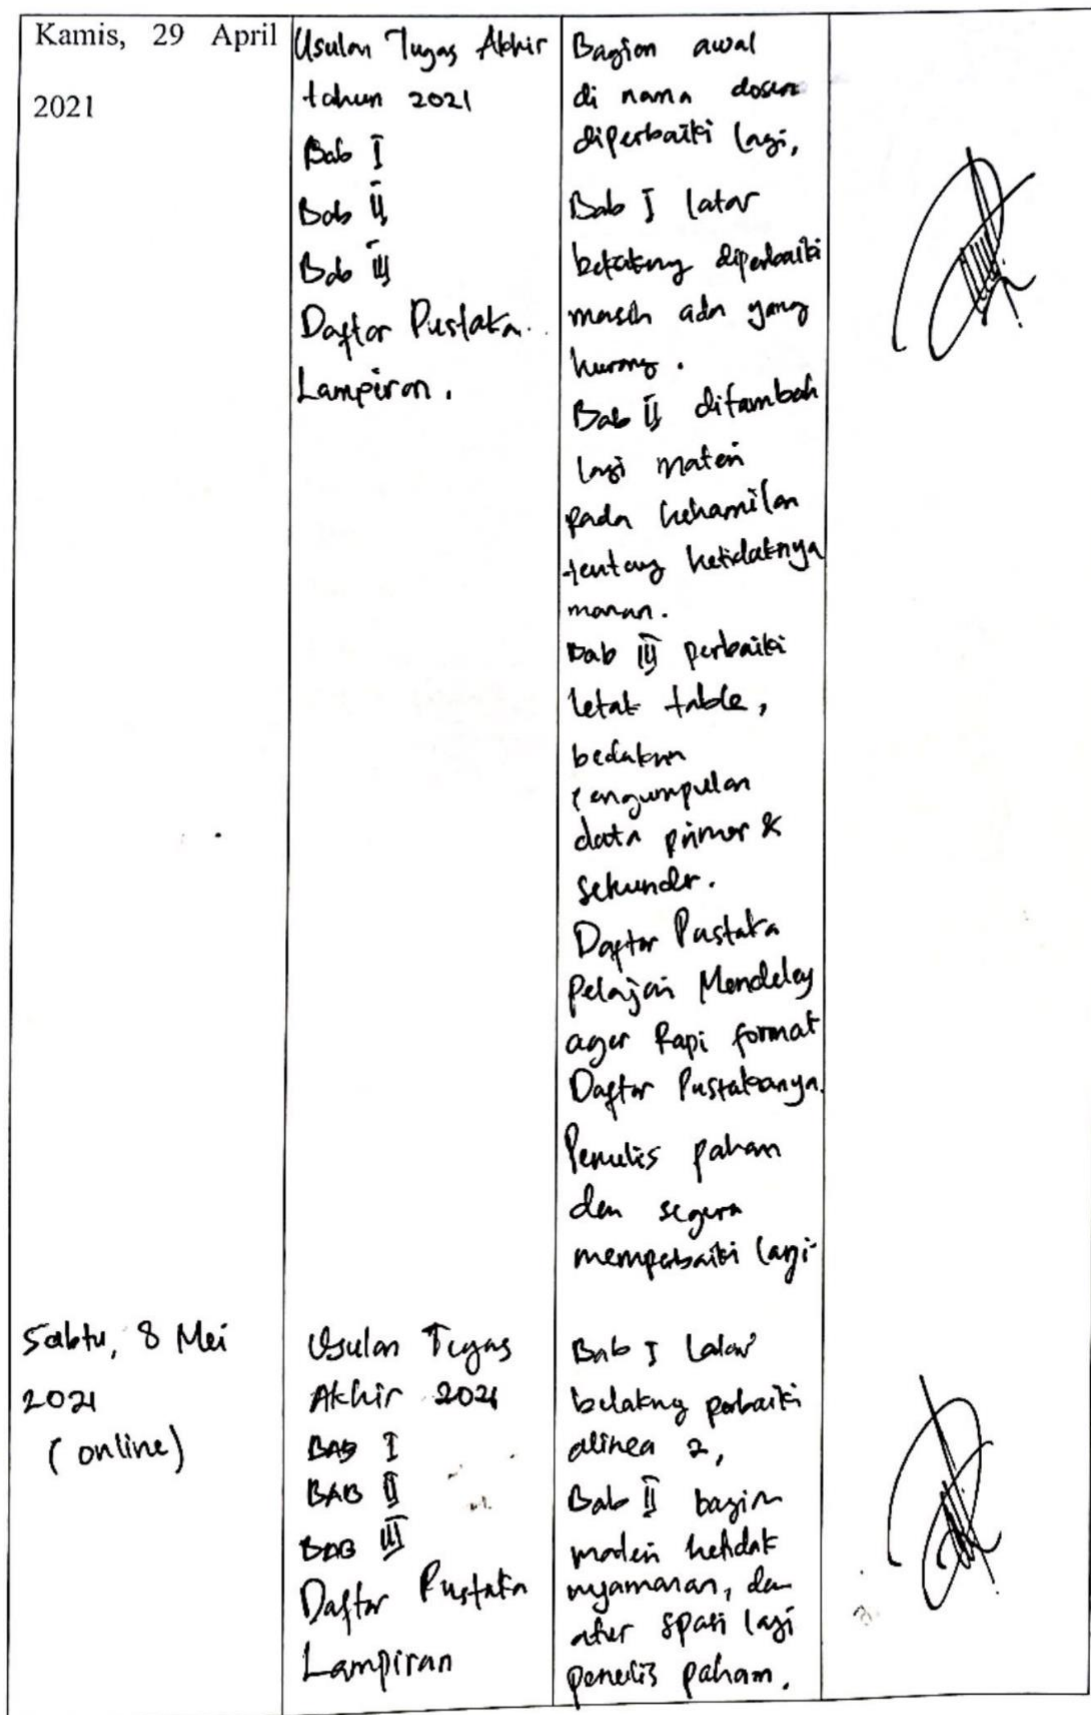 Kamis, 29 April
2021
Usulan Tugas Akhir
tahun 2021
Bab I
Bab II
Bab III
Daftar Pustaka
Lampiran.
Bagian awal
di nama dosen
diperbaiki lagi,
Bab I latar
belakang diperbaiki
masih ada yang
kurang.
Bab II ditambah
lagi materi
pada kehamilan
tentang ketidaknya
manan.
Bab III perbaiki
letak table,
bedakan
pengumpulan
data primer &
sekunder.
Daftar Pustaka
Pelajari Mendeley
agar Rapi format
Daftar Pustakanya.
Penulis paham
dan segera
memperbaiki lagi
Sabtu, 8 Mei
2021
(online)
Usulan Tugas
Akhir 2021
BAB I
BAB II
BAB III
Daftar Pustaka
Lampiran
Bab I Latar
belakng perbaiki
alinea 2,
Bab II bagian
materi ketidak
nyamanan, dan
atur spasi lagi
penulis paham.